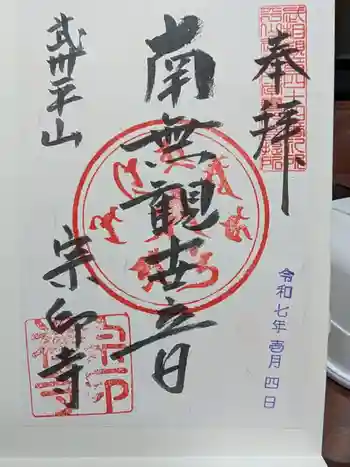 奉拝
令和七年壱月四日
南無觀世音
武州平山
宗印寺